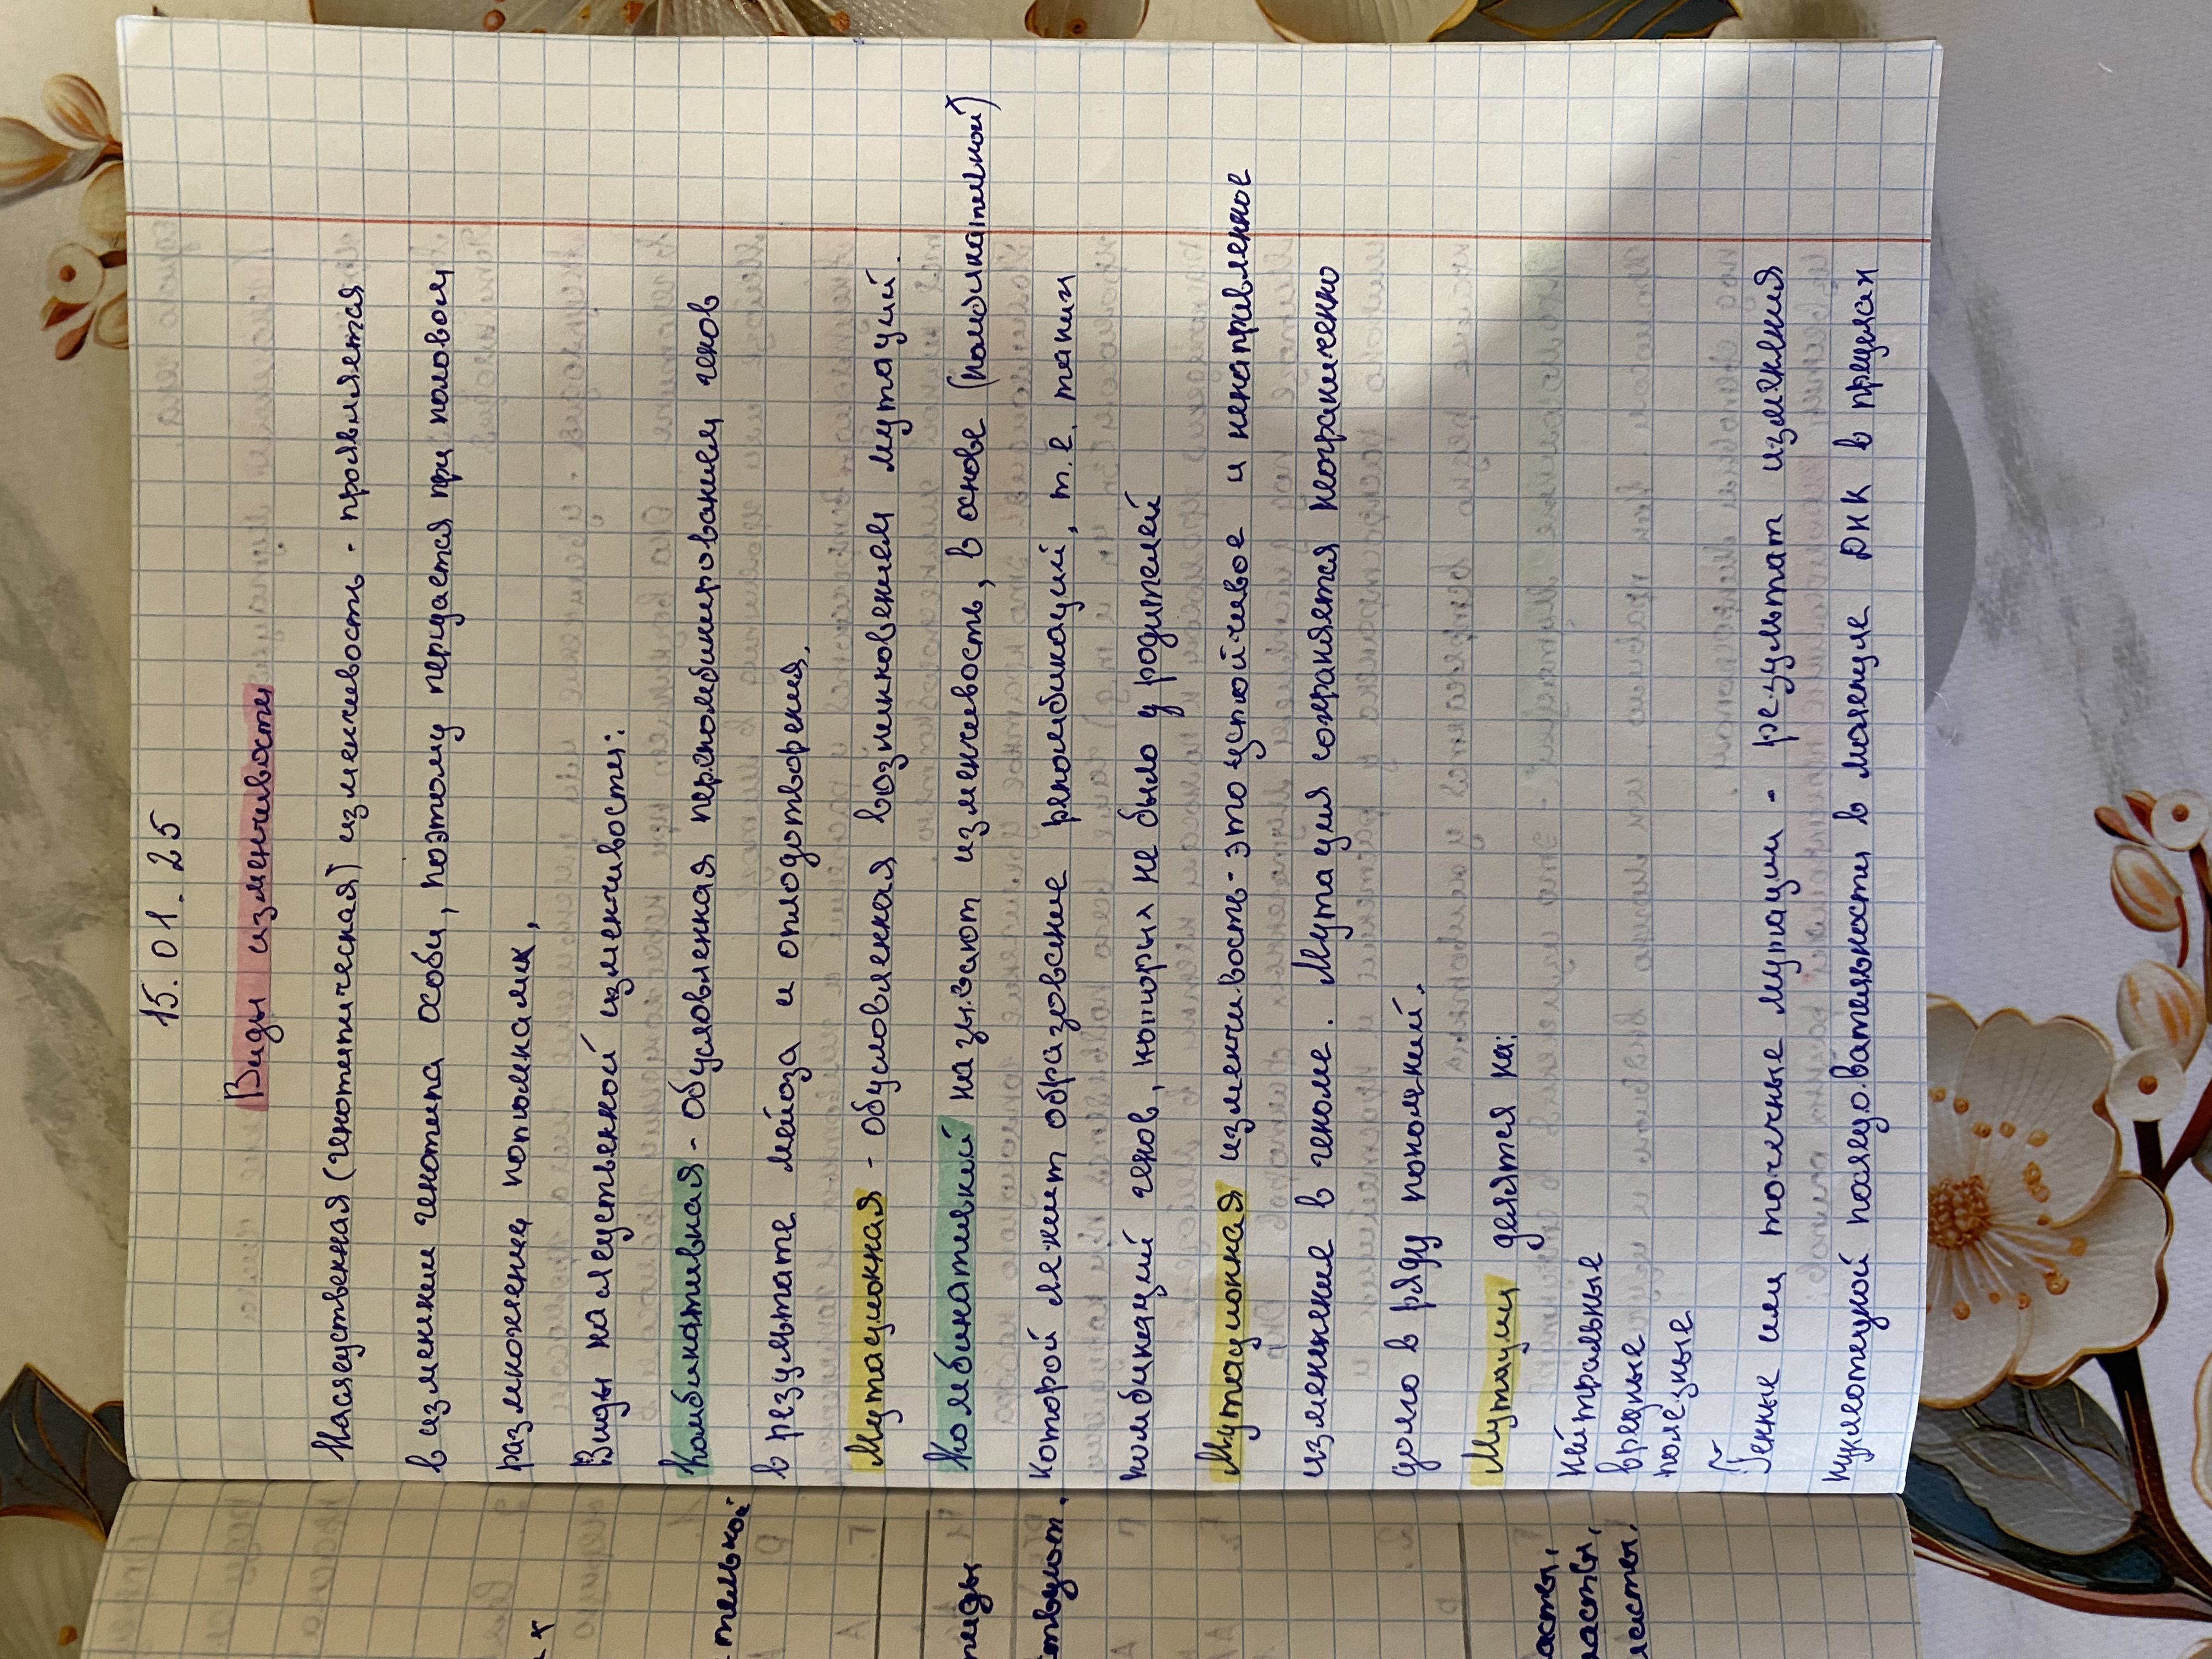 15.01.25
Виды изменчивости
Наследственная (генотипическая) изменчивость - проявляется
в изменении генотипа особи, поэтому передается при половом
размножение потомкам,
Виды наследственной изменчивости:
Комбинативная - обусловленная перекомбинированием генов
в результате мейоза и оплодотворения.
Мутационная - обусловленная возникновением мутаций.
Комбинативной называют изменчивость, в основе
которой лежит образование рекомбинаций, т.е. таких
комбинаций генов, которых не было у родителей
Мутационная изменчивость - это устойчивое и ненаправленное
изменение в геноме. Мутация сохраняется неограниченно
долго в ряду поколений.
Мутации делятся на:
Нейтральные
вредные
полезные
Генные или точечные мутации - результат изменения
нуклеотидной последовательности в молекуле ДНК в пределах
тельной
ствуют.